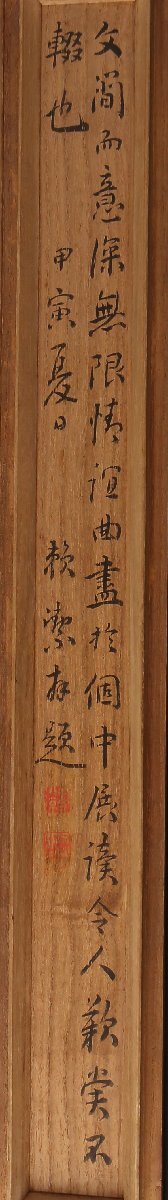 文簡而意深無限情誼曲盡於個中展讀令人歎賞不
輟也
甲寅夏日 賴潔存題